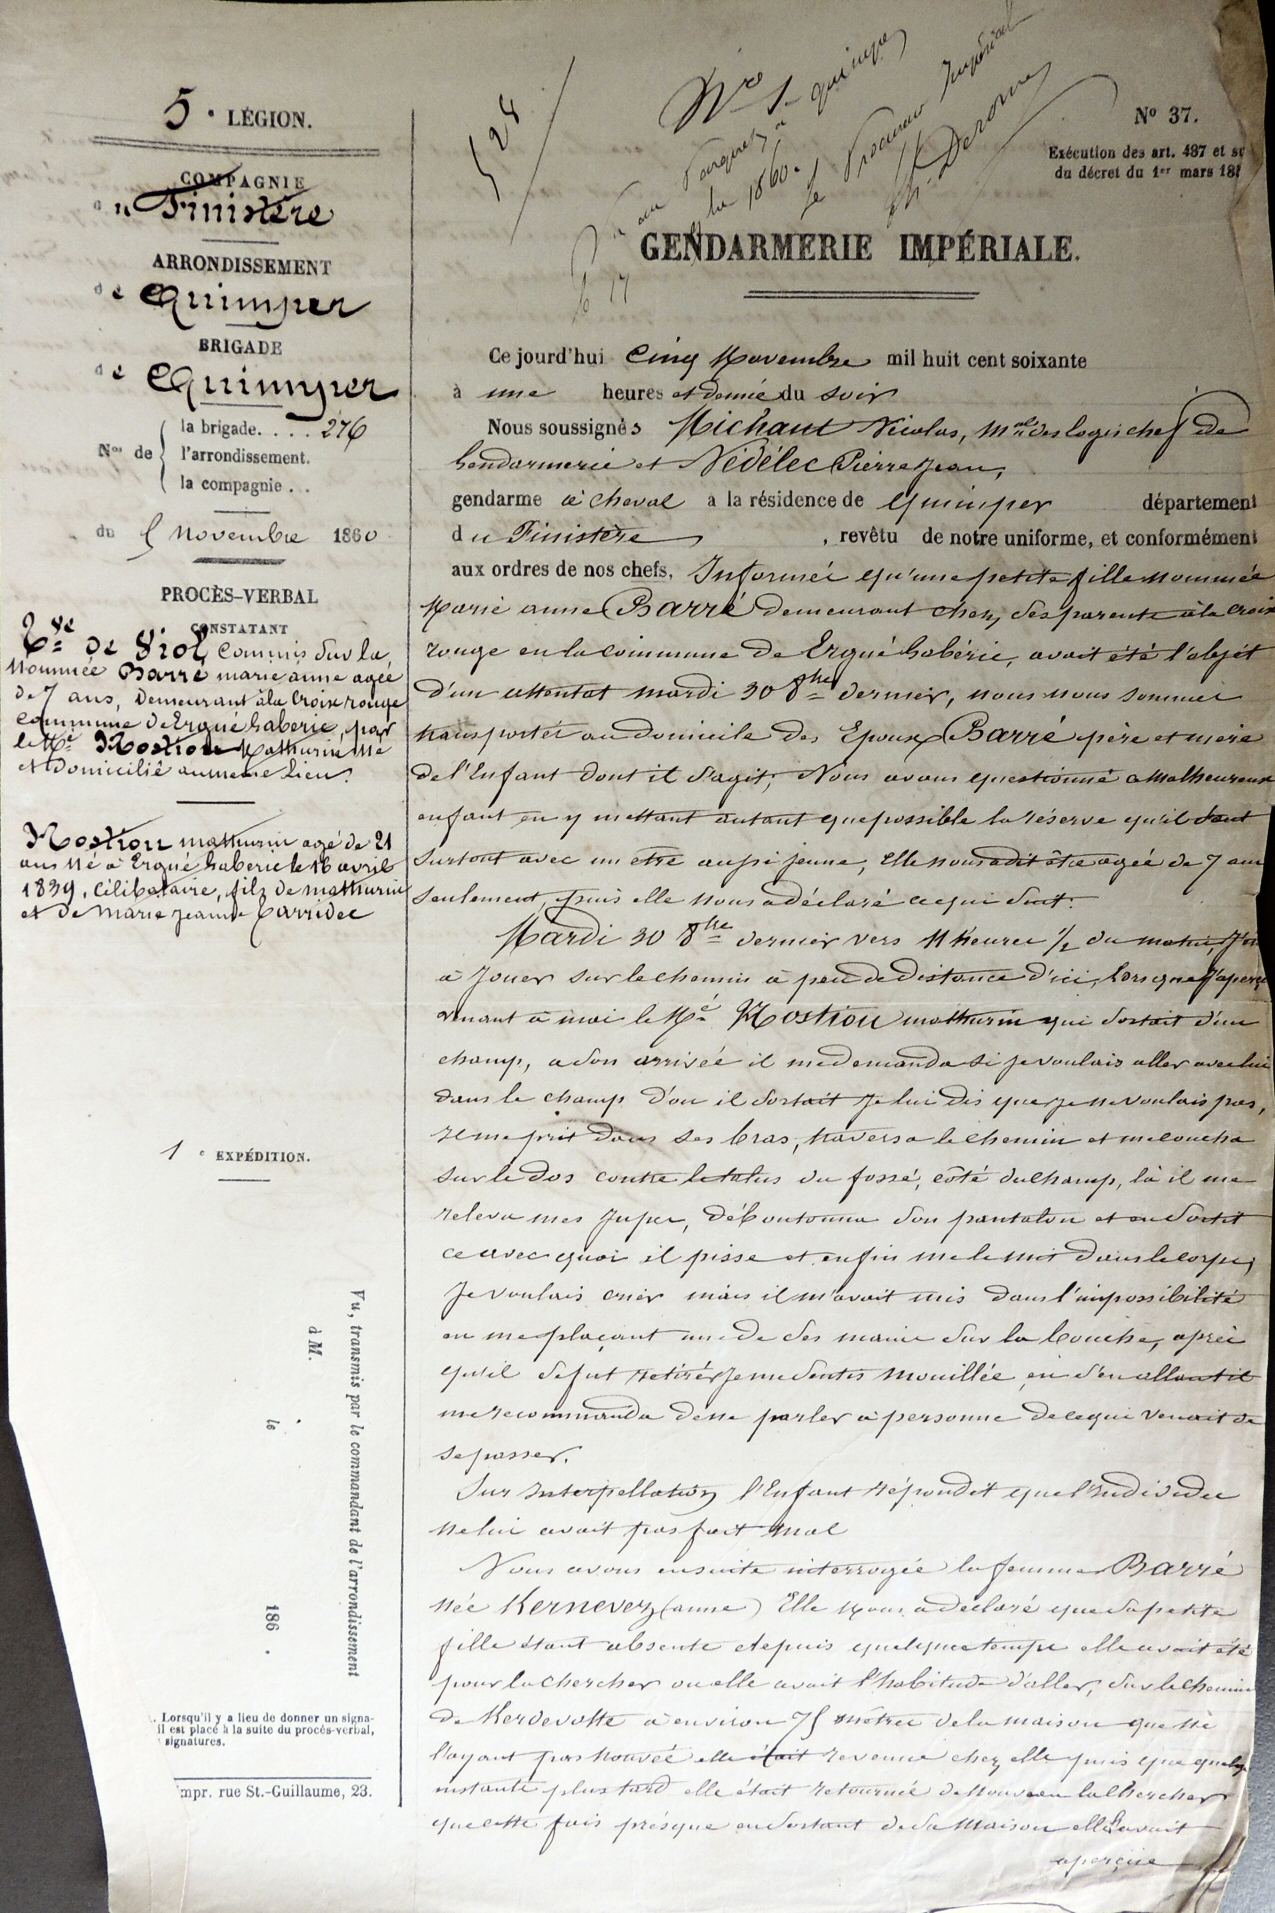 5e LÉGION.
COMPAGNIE
du Finistère
ARRONDISSEMENT
de Quimper
BRIGADE
de Quimper
Nos de
la brigade. . . . 276
l'arrondissement.
la compagnie . .
du 5 novembre 1860
PROCÈS-VERBAL
CONSTATANT
de Viol, commis sur la
nommée Barré marie anne agée
de 7 ans, demeurant à la Croix rouge
commune de Ergué Gaberic, par
le Né Rostiou Mathurin né
et domicilié au même lieu.
Rostiou mathurin agé de 21
ans né à Ergué Gaberic le 16 avril
1839, célibataire, fils de mathurin
et de Marie Jeanne Carridec
1e EXPÉDITION.
Vu, transmis par le commandant de l'arrondissement
à M.
le 186 .
Lorsqu'il y a lieu de donner un signa-
il est placé à la suite du procès-verbal,
signatures.
impr. rue St.-Guillaume, 23.
528
au Parquet à Quimper
le 17 1860.
le Procureur Impérial
No 37.
Exécution des art. 487 et su
du décret du 1er mars 185
GENDARMERIE IMPÉRIALE.
Ce jourd'hui cinq Novembre mil huit cent soixante
à une heures et demie du soir
Nous soussignés Michaut Nicolas, Mal des logis chef de
Gendarmerie et Nédélec Pierre Jean,
gendarme à cheval à la résidence de Quimper département
du Finistère, revêtu de notre uniforme, et conformément
aux ordres de nos chefs, Informés qu'une petite fille nommée
Marie anne Barré demeurant chez ses parents à la croix
rouge en la commune de Ergué Gabéric, avait été l'objet
d'un attentat mardi 30 8bre dernier, nous nous sommes
transportés au domicile des Epoux Barré père et mère
de l'Enfant dont il s'agit, Nous avons questionné ce malheureux
enfant en y mettant autant que possible la réserve qu'il faut
surtout avec un etre aussi jeune, Elle nous a dit être agée de 7 ans
seulement, puis elle nous a déclaré ce qui suit:
Mardi 30 8bre dernier vers 11 heures 1/2 du matin, J'é
à Jouer sur le chemin à peu de distance d'ici, lorsque J'aperç
venant à moi le Né Rostiou mathurin qui sortait d'un
champ, a son arrivée il me demanda si je voulais aller avec lui
dans le champ d'ou il sortait Je lui dis que Je ne voulais pas,
Il me prit dans ses bras, traversa le chemin et me coucha
sur le dos contre le talus du fossé, côté du champ, là il me
releva mes Jupes, déboutonna son pantalon et en sortit
ce avec quoi il pisse et enfin me le mit dans le corps,
Je voulais crier mais il m'avait mis dans l'impossibilité
en me plaçant une de ses mains sur la bouche, après
qu'il se fut retiré je me sentis mouillée, en s'en allant il
me recommanda de ne parler à personne de ce qui venait de
se passer.
Sur Interpellation, l'Enfant répondit que l'Individu
ne lui avait pas fait mal
Nous avons ensuite interrogée la femme Barré
née Kernevez (anne) Elle nous a déclaré que sa petite
fille étant absente depuis quelques temps elle avait été
pour la chercher ou elle avait l'habitude d'aller, sur le chemin
de Kerdevotte à environ 75 mètres de la maison que ne
l'ayant pas trouvée elle était revenue chez elle puis que quelq
instants plus tard elle était retournée de Nouveau la chercher
que cette fois présque en sortant de sa Maison elle l'avait
aperçue